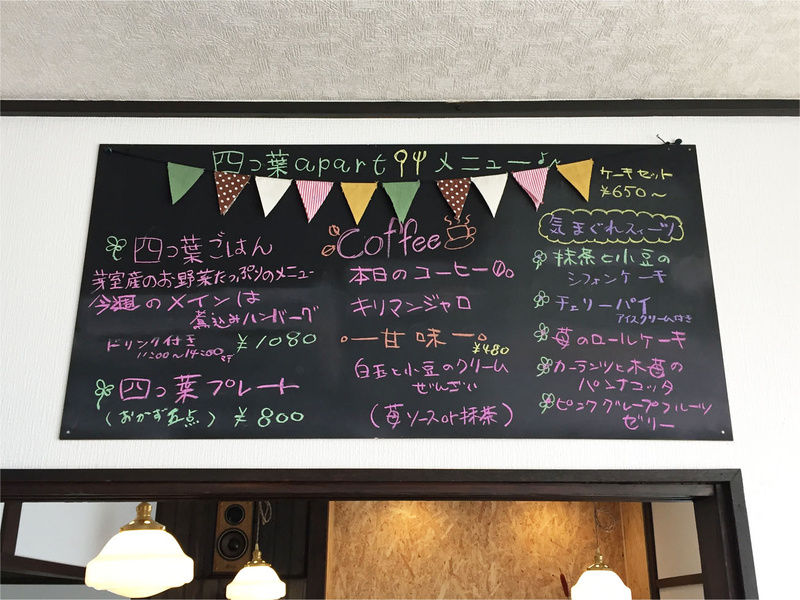 四つ葉apartメニュー♪
四つ葉ごはん
芽室産のお野菜たっぷりのメニュー
今週のメインは
煮込みハンバーグ
ドリンク付き
11:00〜14:00まで
¥1080
四つ葉プレート
(おかず五点) ¥800
Coffee
本日のコーヒー
キリマンジャロ
甘味
¥480
白玉と小豆のクリーム
ぜんざい
(苺ソースor抹茶)
ケーキセット
¥650〜
気まぐれスイーツ
抹茶と小豆の
シフォンケーキ
チェリーパイ
アイスクリーム付き
苺のロールケーキ
カーランツと木苺の
パンナコッタ
ピンクグレープフルーツ
ゼリー